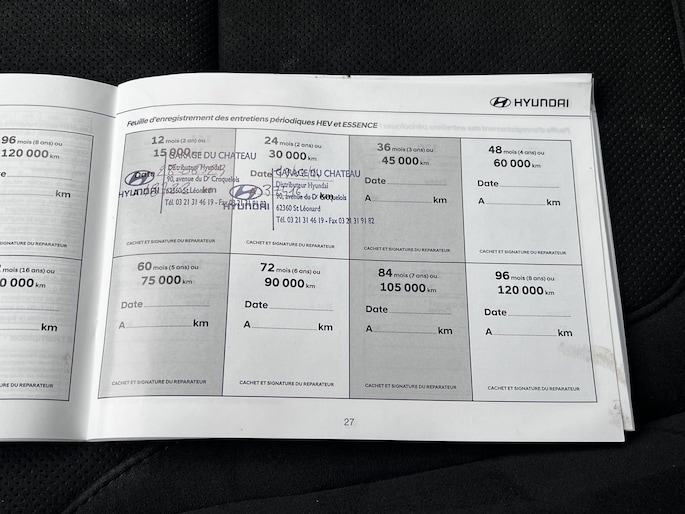 HYUNDAI
Feuille d'enregistrement des entretiens périodiques HEV et ESSENCE
96 mois (8 ans) ou
120 000 km
12 mois (2 ans) ou
15 000 km
Date
A km
GARAGE DU CHATEAU
Distributeur Hyundai
90, avenue du Dr Croquelois
62360 St Léonard
Tél. 03 21 31 46 19 - Fax 03 21 31 91 82
HYUNDAI
24 mois (2 ans) ou
30 000 km
Date
km
GARAGE DU CHATEAU
Distributeur Hyundai
90, avenue du Dr Croquelois
62360 St Léonard
Tél. 03 21 31 46 19 - Fax 03 21 31 91 82
HYUNDAI
CACHET ET SIGNATURE DU REPARATEUR
36 mois (3 ans) ou
45 000 km
Date
A km
CACHET ET SIGNATURE DU REPARATEUR
48 mois (4 ans) ou
60 000 km
Date
A km
CACHET ET SIGNATURE DU REPARATEUR
SIGNATURE DU REPARATEUR
CACHET ET SIGNATURE DU REPARATEUR
mois (16 ans) ou
0 000 km
60 mois (5 ans) ou
75 000 km
Date
A km
CACHET ET SIGNATURE DU REPARATEUR
72 mois (6 ans) ou
90 000 km
Date
A km
CACHET ET SIGNATURE DU REPARATEUR
84 mois (7 ans) ou
105 000 km
Date
A km
CACHET ET SIGNATURE DU REPARATEUR
96 mois (8 ans) ou
120 000 km
Date
A km
CACHET ET SIGNATURE DU REPARATEUR
km
km
URE DU REPARATEUR
27